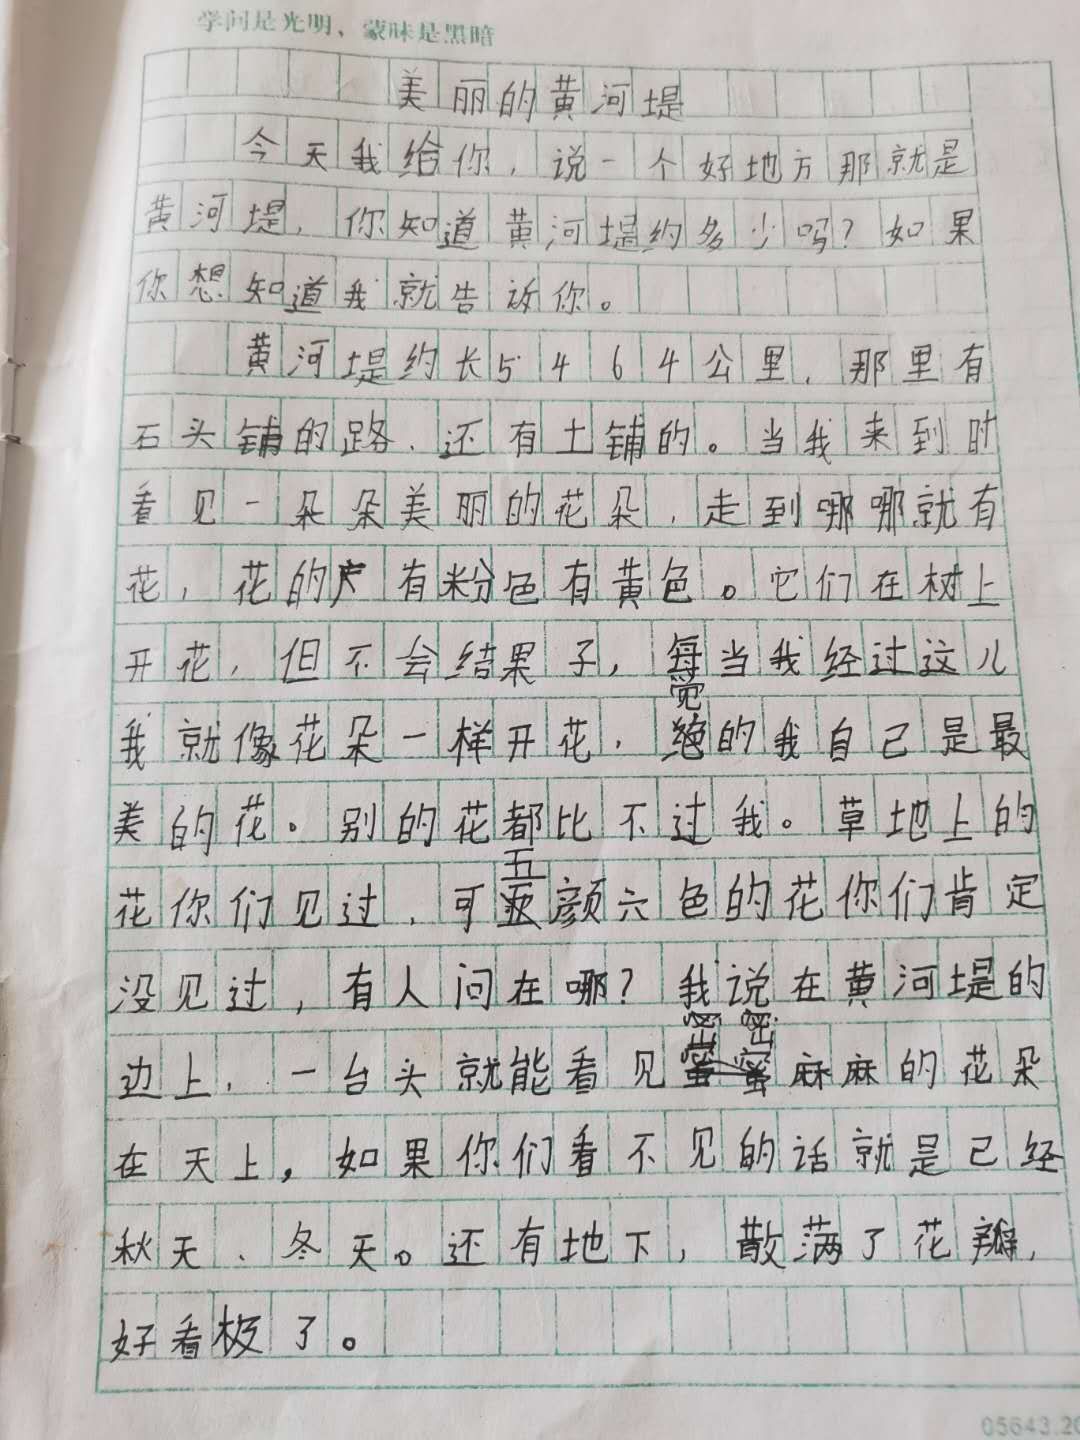 学问是光明、蒙昧是黑暗
美丽的黄河堤
今天我给你，说一个好地方那就是
黄河堤，你知道黄河堤约多少吗？如果
你想知道我就告诉你。
黄河堤约长5464公里，那里有
石头铺的路、还有土铺的。当我来到时
看见一朵朵美丽的花朵，走到哪哪就有
花，花的产有粉色有黄色。它们在树上
开花，但不会结果子，每当我经过这儿
我就像花朵一样开花，觉的我自己是最
美的花。别的花都比不过我。草地上的
花你们见过，可五颜六色的花你们肯定
没见过，有人问在哪？我说在黄河堤的
边上，一台头就能看见密密麻麻的花朵
在天上，如果你们看不见的话就是已经
秋天、冬天。还有地下，散满了花瓣，
好看极了。